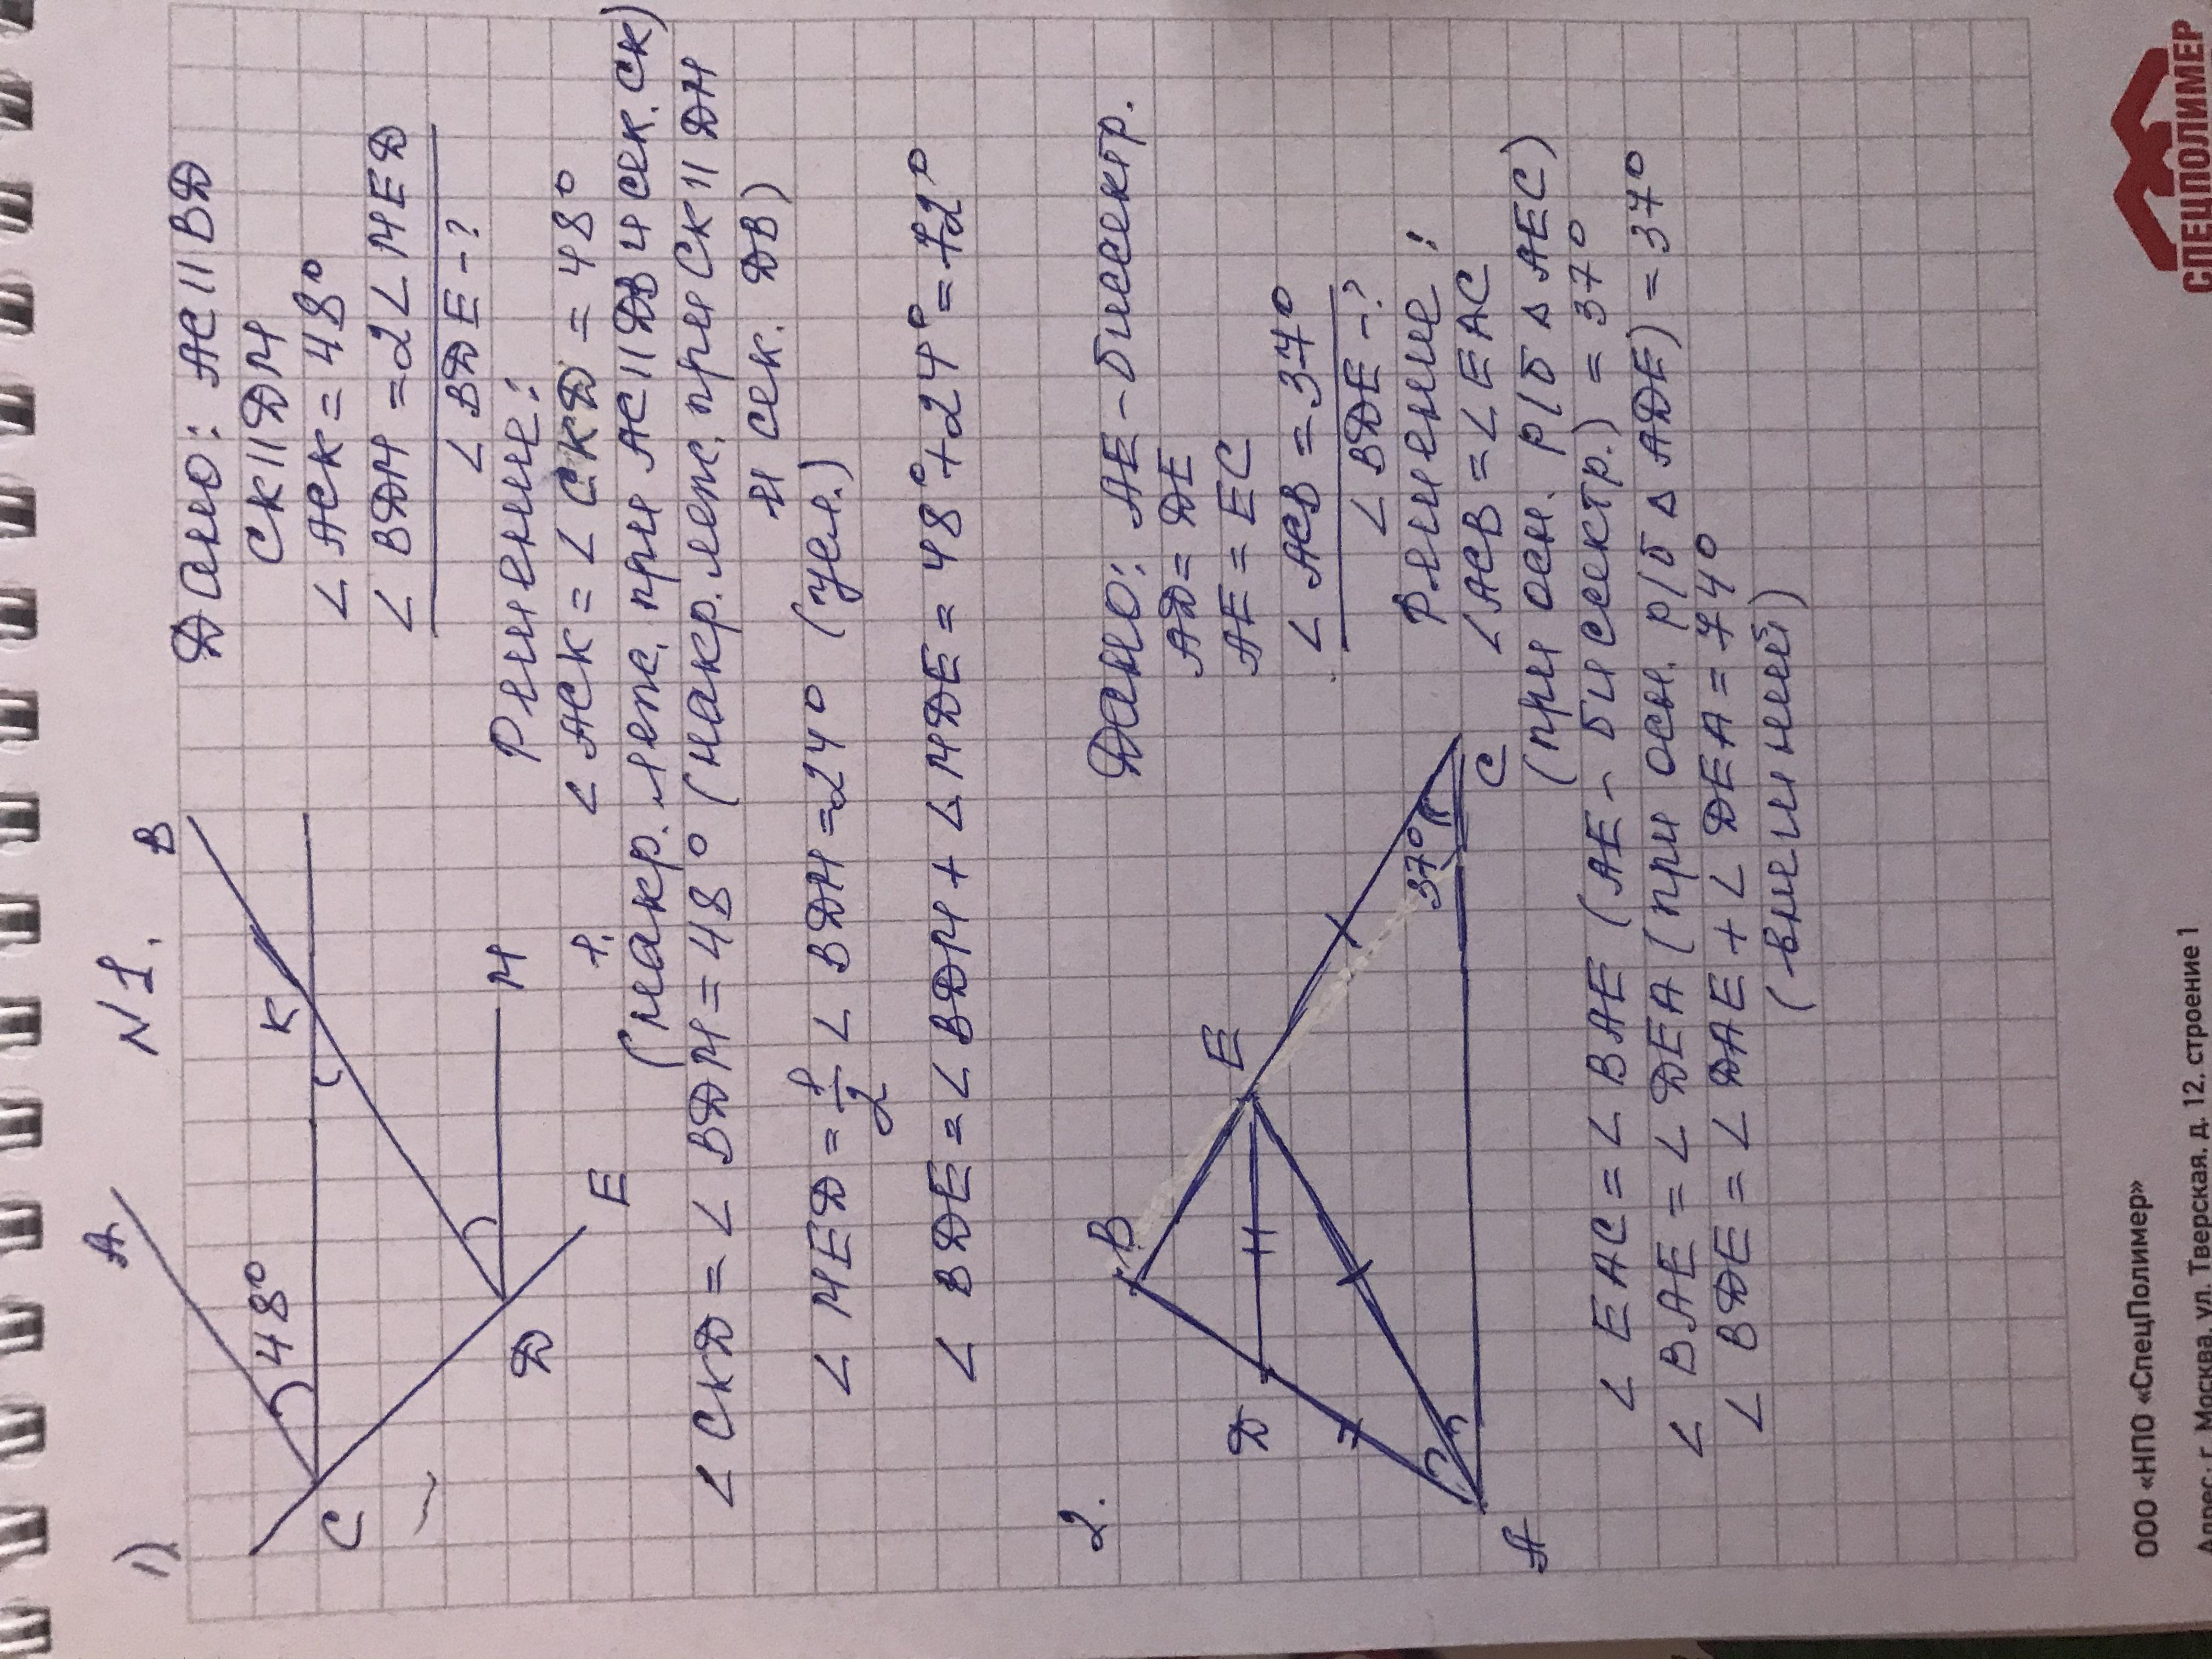 N 1.
1)
Дано: AC || BD
CK || DM
∠ACK = 48°
∠BDM = 2∠MED
∠BDE - ?
A
B
K
48°
C
M
D
E
Решение:
1. ∠ACK = ∠CKD = 48°
(накр. леж. при AC || DB и сек. CK)
∠CKD = ∠BDM = 48° (накр. леж. при CK || DM
и сек. DB)
∠MED = 1/2 ∠BDM = 24° (усл.)
∠BDE = ∠BDM + ∠MDE = 48° + 24° = 72°
2.
Дано: AE - бисектр.
AD = DE
AE = EC
∠ACB = 37°
∠BDE - ?
B
E
D
37°
A
C
Решение:
∠ACB = ∠EAC
(при осн. р/б ∆ AEC)
∠EAC = ∠BAE (AE - бисектр.) = 37°
∠BAE = ∠DEA (при осн. р/б ∆ ADE) = 37°
∠BDE = ∠DAE + ∠DEA = 74°
(внешний)
СПЕЦПОЛИМЕР
ООО «НПО «СпецПолимер»
Адрес: г. Москва, ул. Тверская, д. 12, строение 1